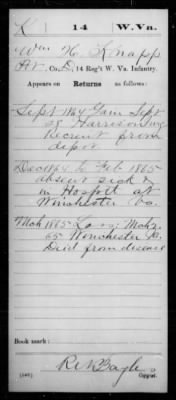 K | 14 | W. Va.
Wm H. Knapp
Pvt., Co. D, 14 Reg't W. Va. Infantry.
Appears on Returns as follows:
Sept 1864 Gain Sept
at Harrisonburg
Recruit from
depot
Dec 1864 to Feb 1865
absent sick
in Hospt at
Winchester Va.
Mch 1865 Loss: Mch
65 Winchester Va.
Died from disease
Book mark:
(546)
Copyist.